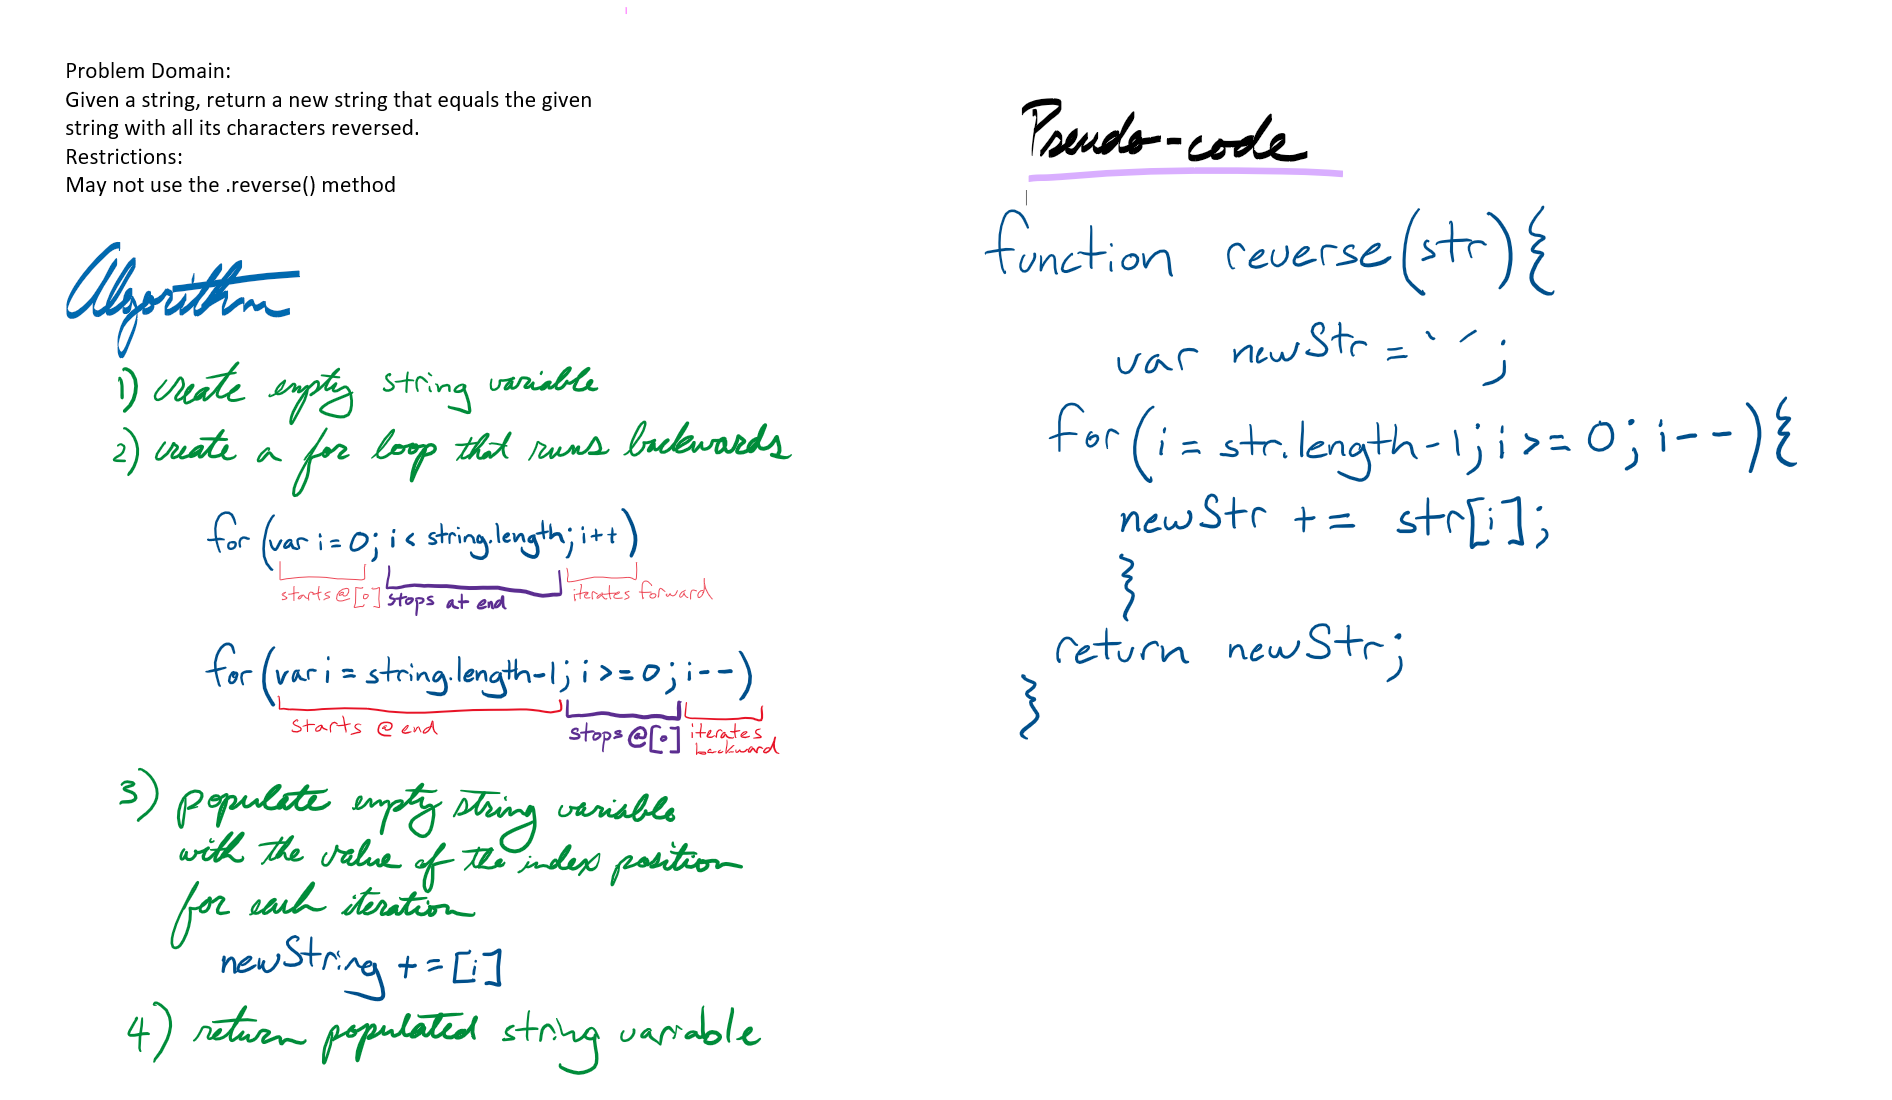 Problem Domain:
Given a string, return a new string that equals the given
string with all its characters reversed.
Restrictions:
May not use the .reverse() method
Algorithm
1) create empty string variable
2) create a for loop that runs backwards
for (var i = 0; i < string.length; i++)
starts @ [0] stops at end iterates forward
for (var i = string.length-1; i >= 0; i--)
starts @ end stops @ [0] iterates
backward
3) populate empty string variable
with the value of the index position
for each iteration
newString += [i]
4) return populated string variable
Pseudo-code
function reverse(str){
var newStr = ‵ ′;
for (i = str.length-1; i >= 0; i--){
newStr += str[i];
}
return newStr;
}